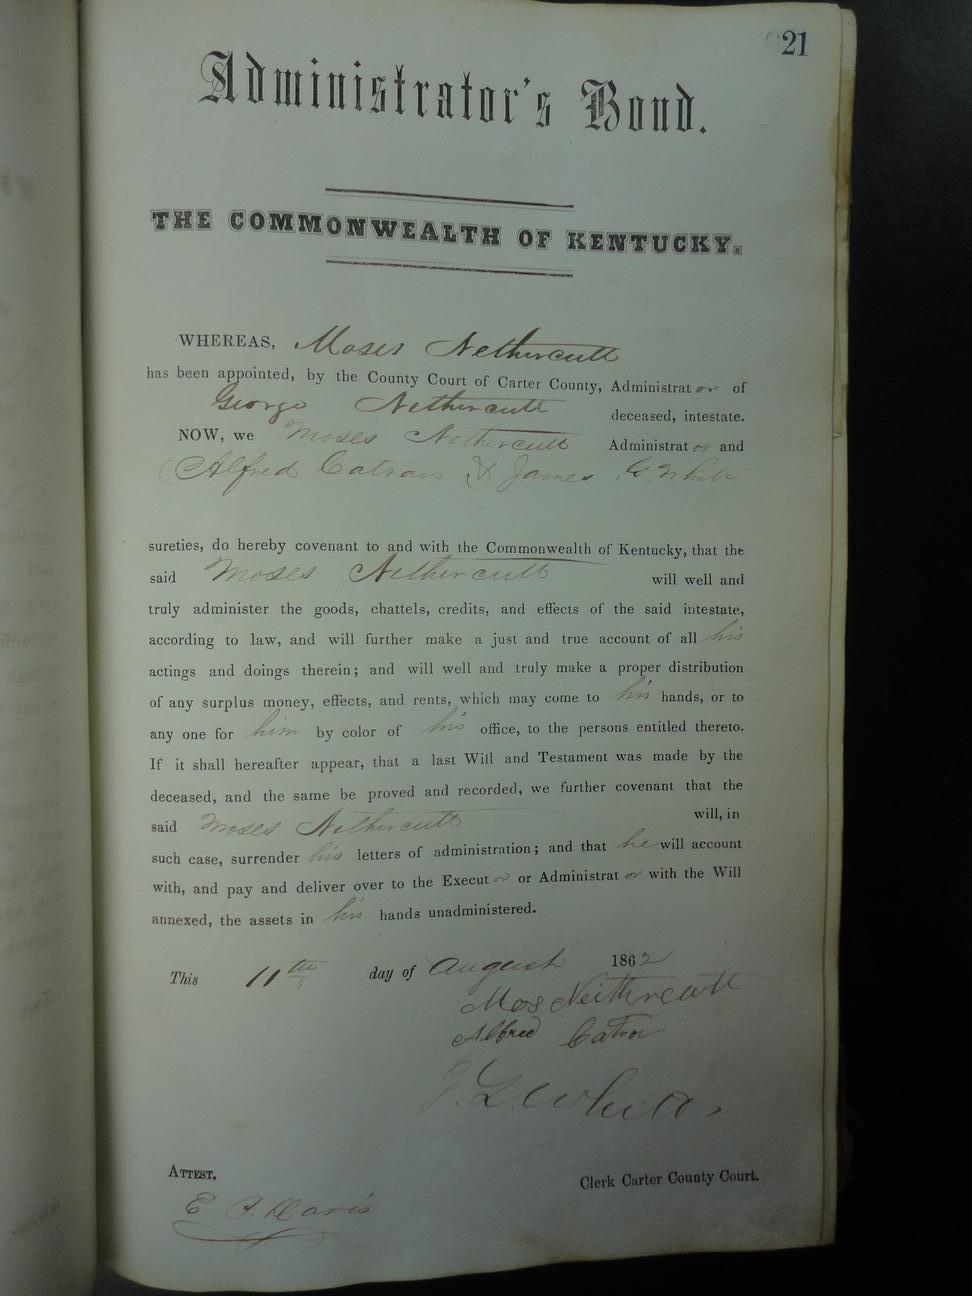 21
Administrator's Bond.
THE COMMONWEALTH OF KENTUCKY.
WHEREAS, Moses Nethercutt
has been appointed, by the County Court of Carter County, Administrator of
George Nethercutt deceased, intestate.
NOW, we Moses Nethercutt Administrator and
Alfred Catron & James G. White
sureties, do hereby covenant to and with the Commonwealth of Kentucky, that the
said Moses Nethercutt will well and
truly administer the goods, chattels, credits, and effects of the said intestate,
according to law, and will further make a just and true account of all his
actings and doings therein; and will well and truly make a proper distribution
of any surplus money, effects, and rents, which may come to his hands, or to
any one for him by color of his office, to the persons entitled thereto.
If it shall hereafter appear, that a last Will and Testament was made by the
deceased, and the same be proved and recorded, we further covenant that the
said Moses Nethercutt will, in
such case, surrender his letters of administration; and that he will account
with, and pay and deliver over to the Executor or Administrator with the Will
annexed, the assets in his hands unadministered.
This 11th day of August 1862
Mos Neithercutt
Alfred Catron
White
ATTEST,
Clerk Carter County Court.
E. Davis